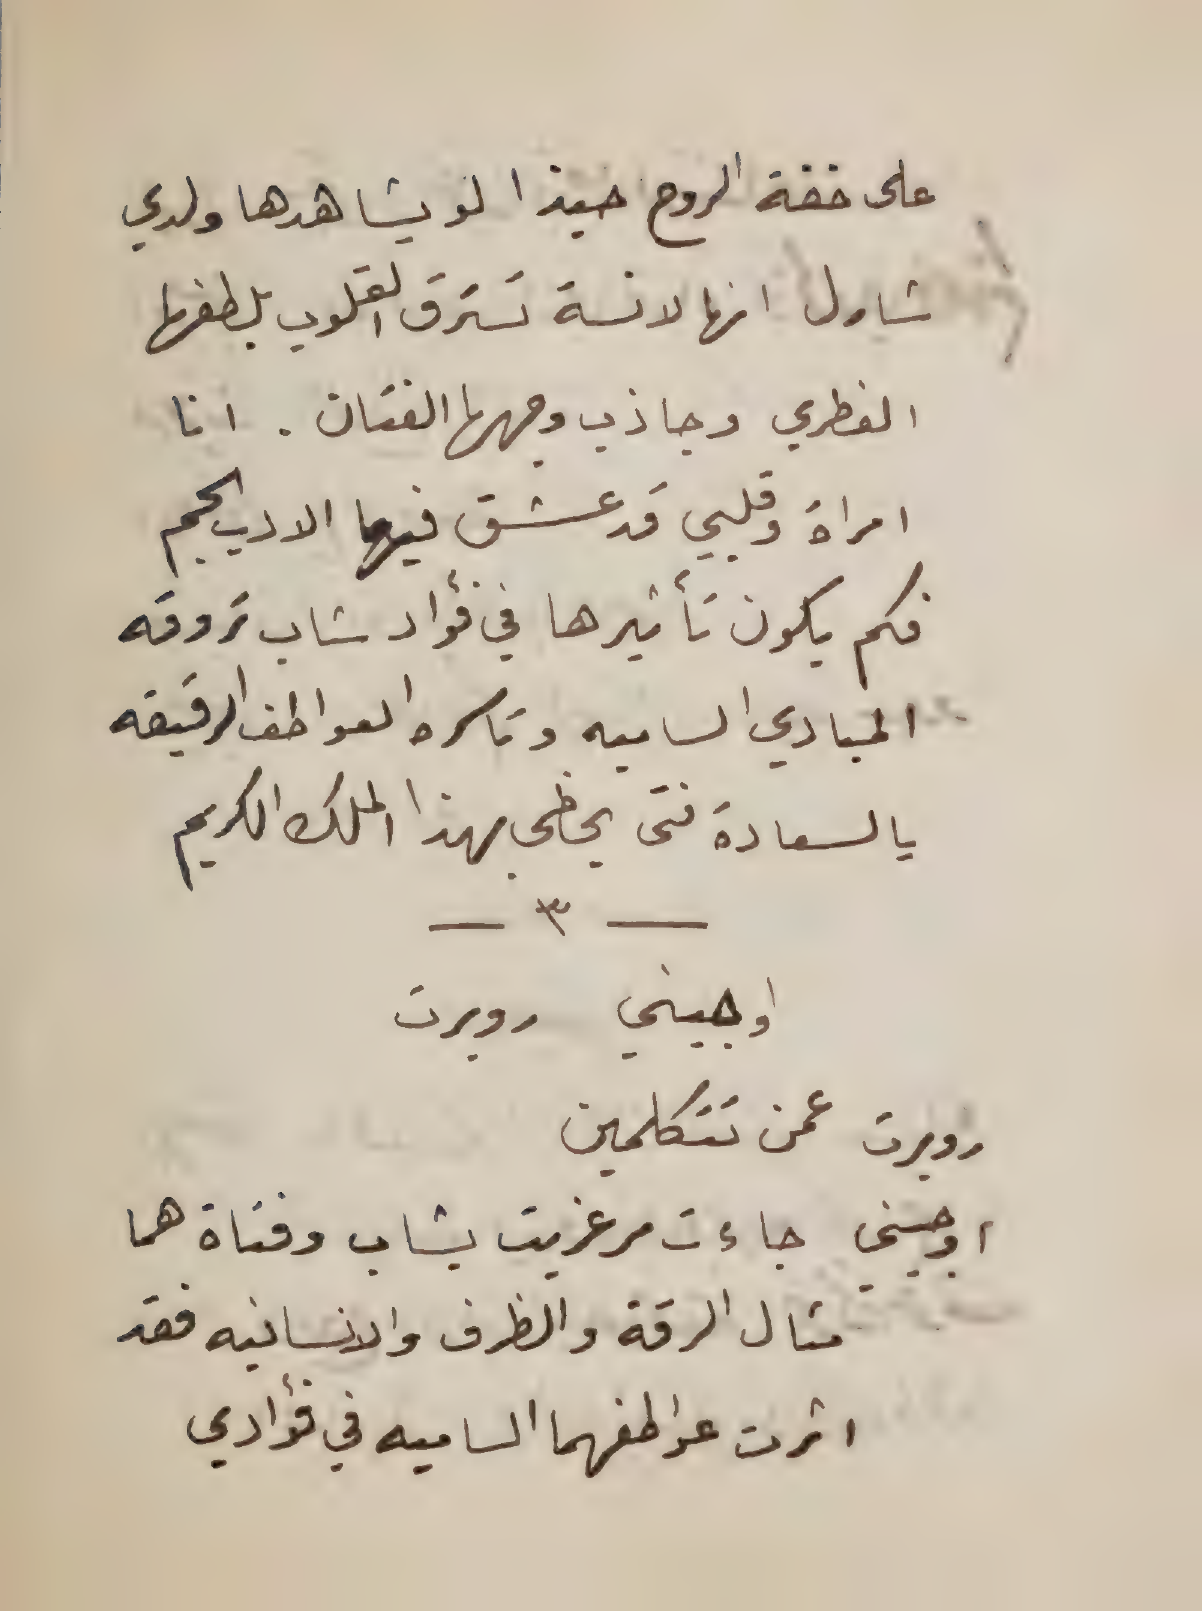 على خفة الروح حبذا لو يشاهدها ولدي
شارل انها لانسة تسترق القلوب بلطفها
الفطري وجاذب وجهها الفتان . انا
امراة وقلبي قد عشق فيها الادب الجم
فكم يكون تأثيرها في فؤاد شاب تروقه
المبادي الساميه وتاسره العواطف الرقيقه
يالسعادة فتى يحظى بهذا الملك الكريم
— ٣ —
اوجيني روبرت
روبرت عمن تتكلمين
اوجيني جاءت مرغريت بشاب وفتاة هما
مثال الرقة والظرف والانسانيه فقد
اثرت عواطفهما الساميه في فؤادي